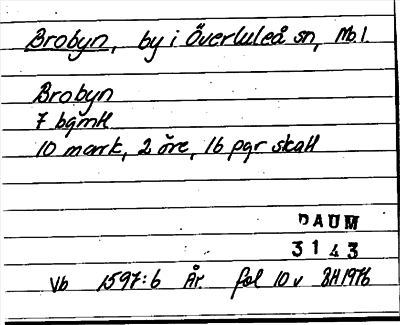 Brobyn, by i Överluleå sn, Nb l.
Brobyn
7 bgmtl
10 mark, 2 öre, 16 pgr skatt
DAUM
3143
Vb 1597:6 År. fol 10 v BH 1976